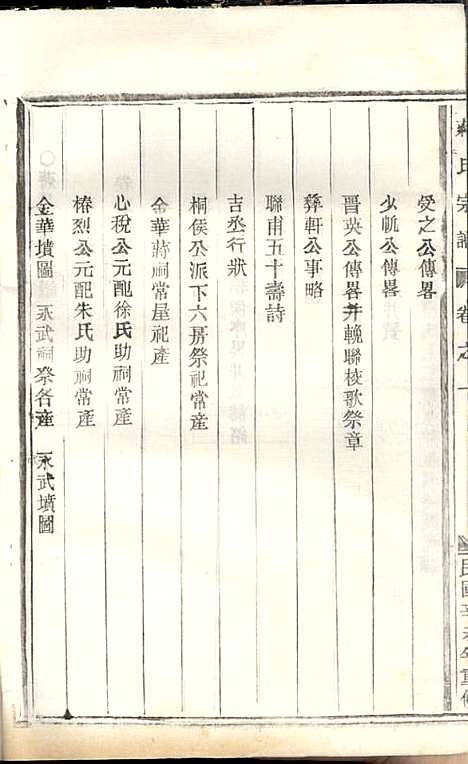 氏宗譜 卷之一 民國辛未年重修
受之公傳畧
少帆公傳畧
晋英公傳畧并輓聯梭歌祭章
彝軒公事略
聯甫五十壽詩
吉丞行狀
桐侯公派下六房祭祀常產
金華蔣祠常屋祀產
心稅公元配徐氏助祠常產
椿烈公元配朱氏助祠常產
金華墳圖 永武祠祭各產 永武墳圖